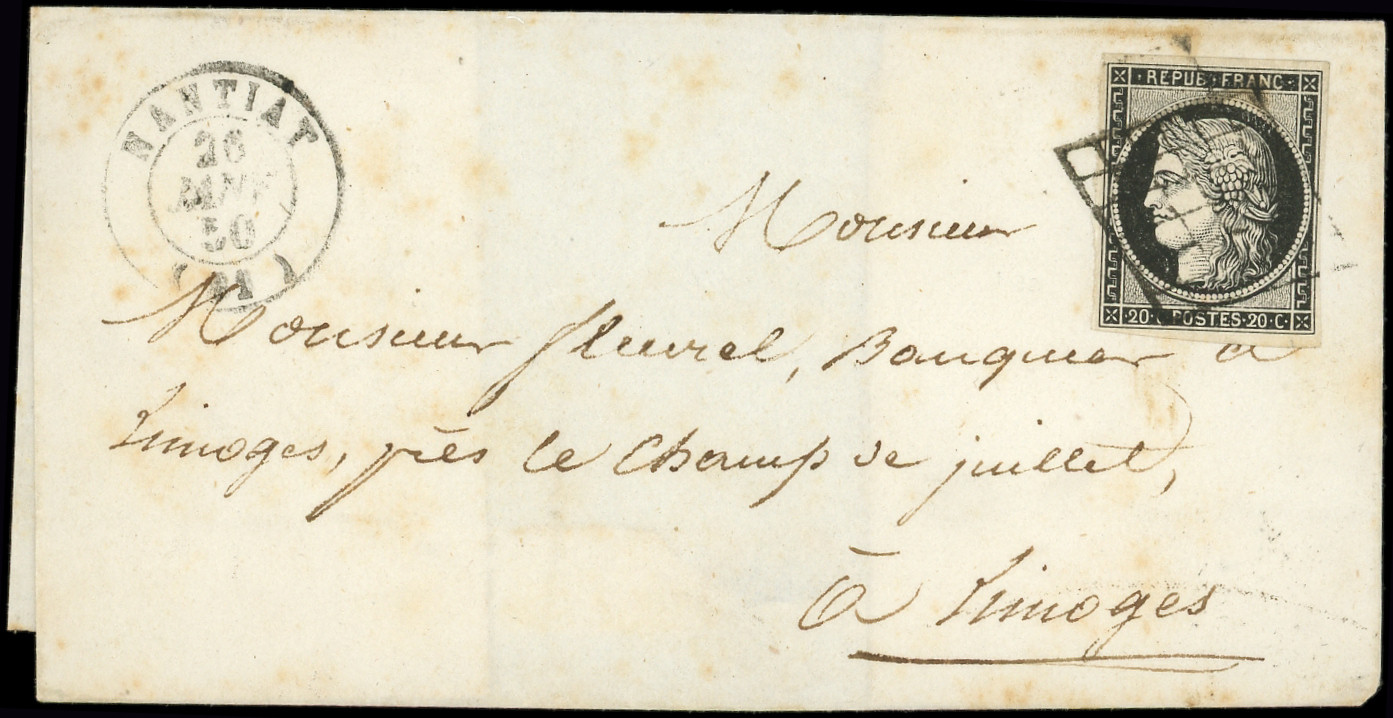 NANTIAT
26
JANV
50
REPUB FRANC
20 C POSTES 20 C
Monsieur
Monsieur fleurel, Banquier à
Limoges, près le Champ de juillet,
à Limoges